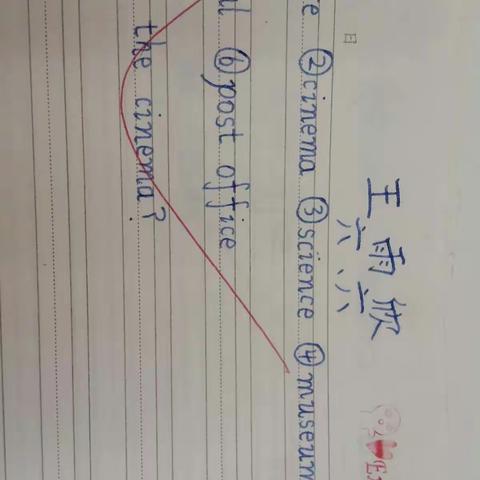 王雨欣
六.六
日
e ②cinema ③science ④museum
l ⑥post office
the cinema?